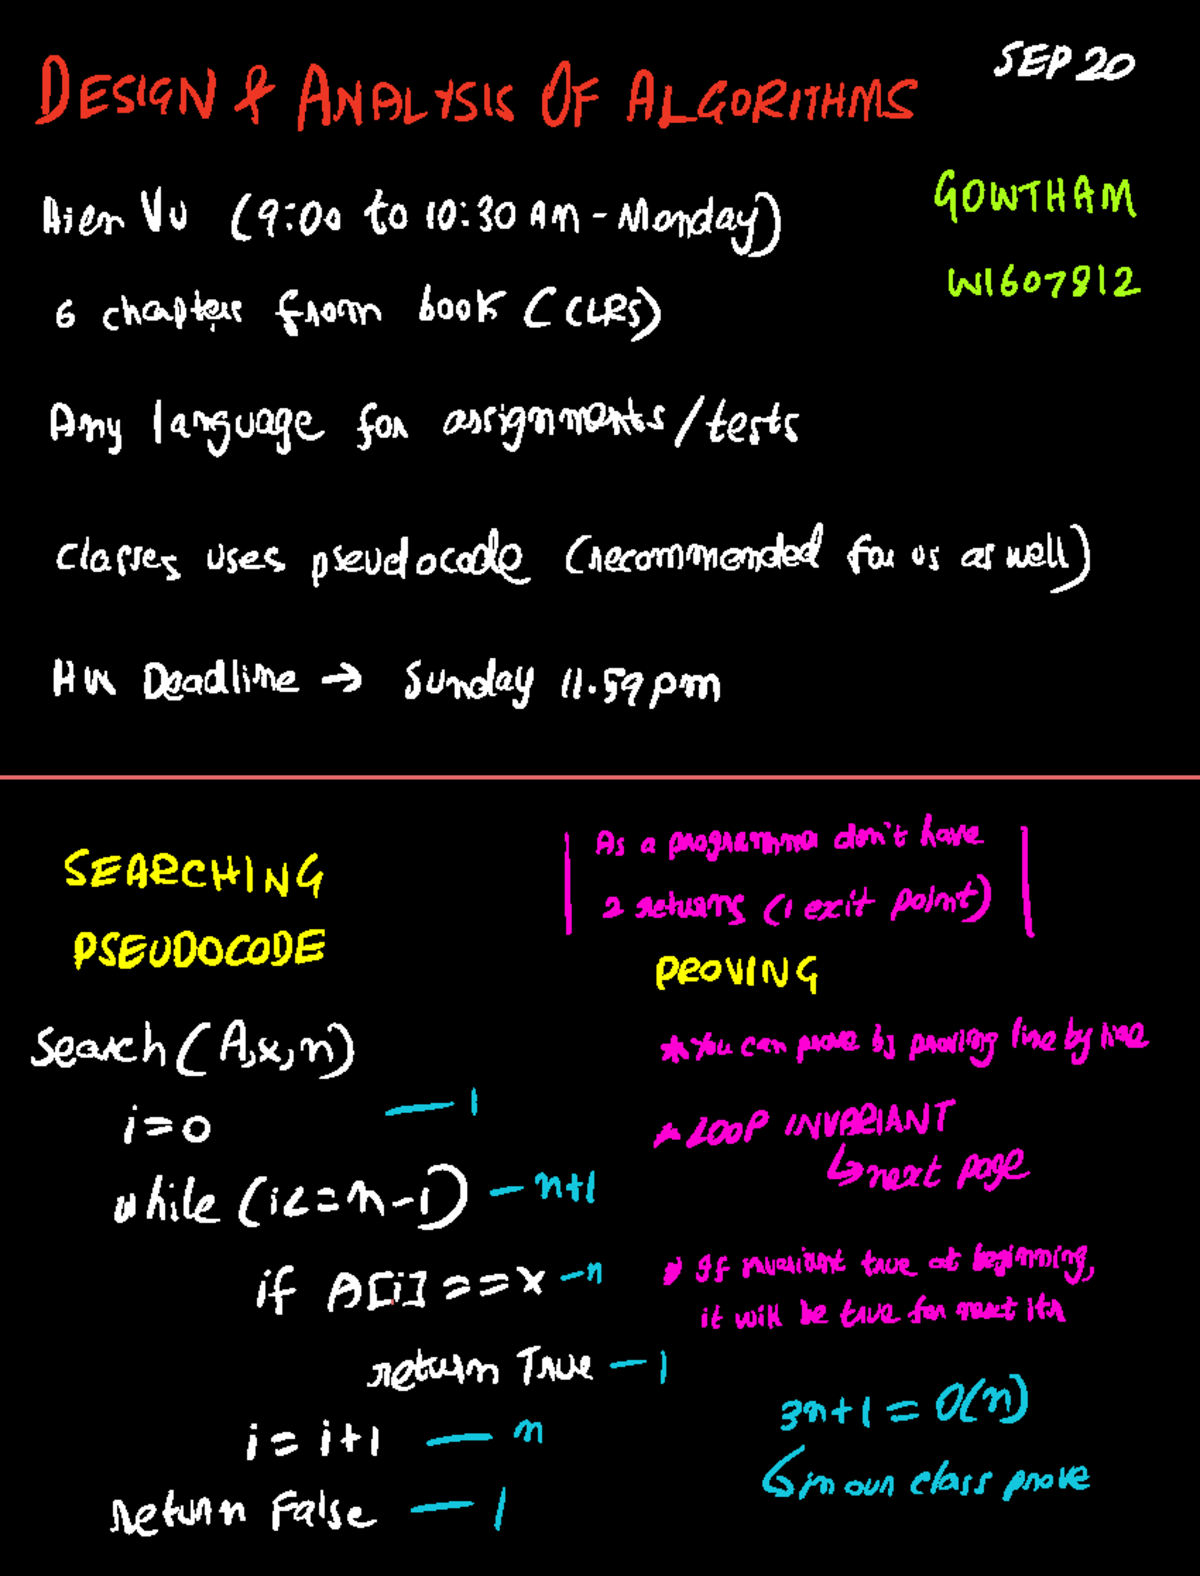 SEP 20
DESIGN & ANALYSIS OF ALGORITHMS
GOWTHAM
Hien Vu (9:00 to 10:30 AM - Monday)
W1607812
6 chapters from book (CLRS)
Any language for assignments/tests
Classes uses pseudocode (recommended for us as well)
HW Deadline → Sunday 11.59pm
SEARCHING
PSEUDOCODE
Search(A,x,n)
i=0 — 1
while (i<=n-1) — n+1
if A[i]==x — n
return True — 1
i = i+1 — n
return False — 1
As a programmer don't have
2 returns (1 exit point)
PROVING
* You can prove by proving line by line
* LOOP INVARIANT
↳ next page
* If invariant true at beginning,
it will be true for next itr
3n+1 = O(n)
↳ in our class prove